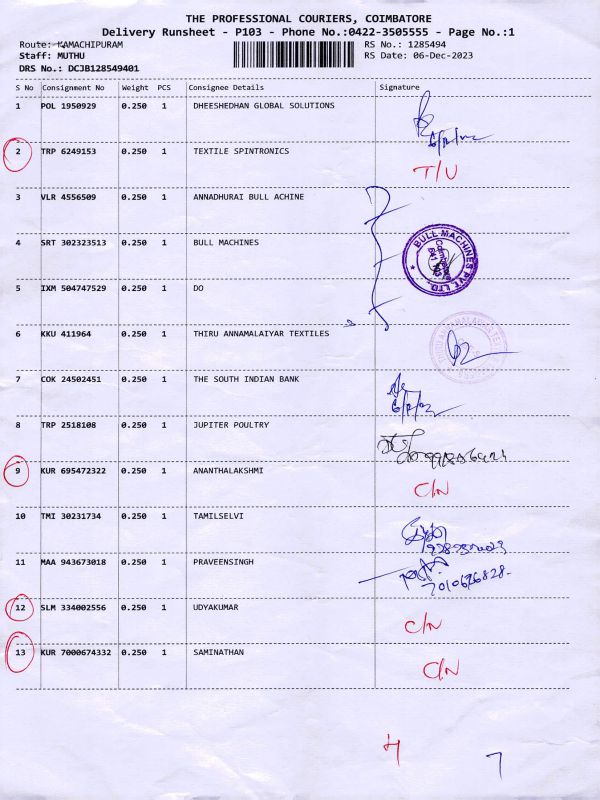 THE PROFESSIONAL COURIERS, COIMBATORE
Delivery Runsheet - P103 - Phone No.:0422-3505555 - Page No.:1
Route: KAMACHIPURAM RS No.: 1285494
Staff: MUTHU RS Date: 06-Dec-2023
DRS No.: DCJB128549401
S No Consignment No Weight PCS Consignee Details Signature
1 POL 1950929 0.250 1 DHEESHEDHAN GLOBAL SOLUTIONS
2 TRP 6249153 0.250 1 TEXTILE SPINTRONICS
T/U
3 VLR 4556509 0.250 1 ANNADHURAI BULL ACHINE
4 SRT 302323513 0.250 1 BULL MACHINES
BULL MACHINES PVT LTD.
5 IXM 504747529 0.250 1 DO
6 KKU 411964 0.250 1 THIRU ANNAMALAIYAR TEXTILES
7 COK 24502451 0.250 1 THE SOUTH INDIAN BANK
8 TRP 2518108 0.250 1 JUPITER POULTRY
9 KUR 695472322 0.250 1 ANANTHALAKSHMI
C/N
10 TMI 30231734 0.250 1 TAMILSELVI
11 MAA 943673018 0.250 1 PRAVEENSINGH
12 SLM 334002556 0.250 1 UDYAKUMAR
C/N
13 KUR 7000674332 0.250 1 SAMINATHAN
C/N
4 7